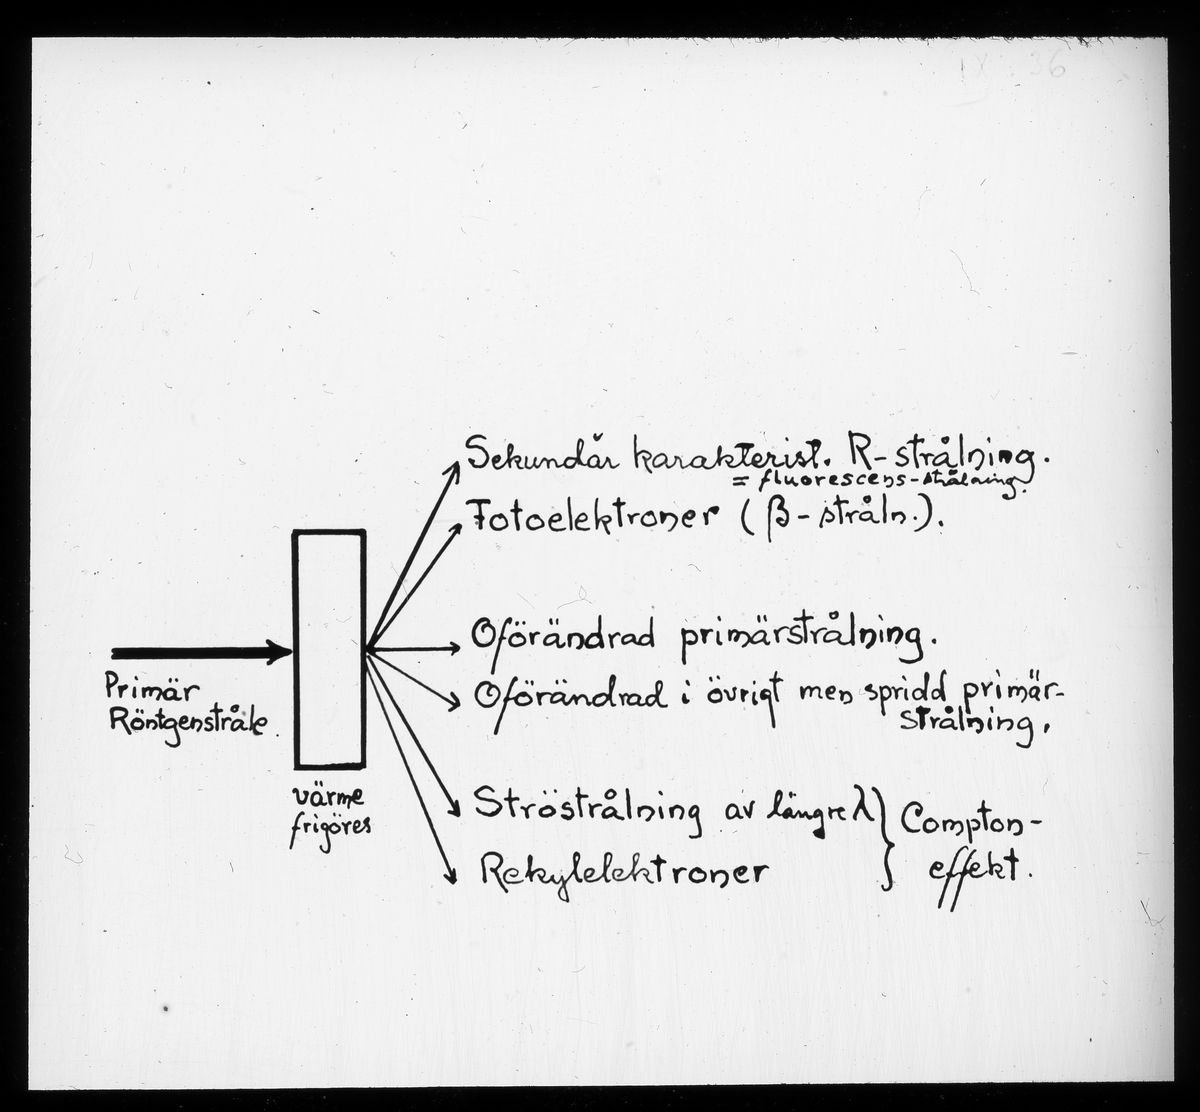 IX. 36
Sekundär karakterist. R-strålning.
= fluorescens-strålning.
Fotoelektroner (β-stråln.).
Oförändrad primärstrålning.
Primär
Röntgenstråle.
Oförändrad i övrigt men spridd primär-
strålning.
värme
frigöres
Ströstrålning av längre λ } Compton-
Rekylelektroner effekt.